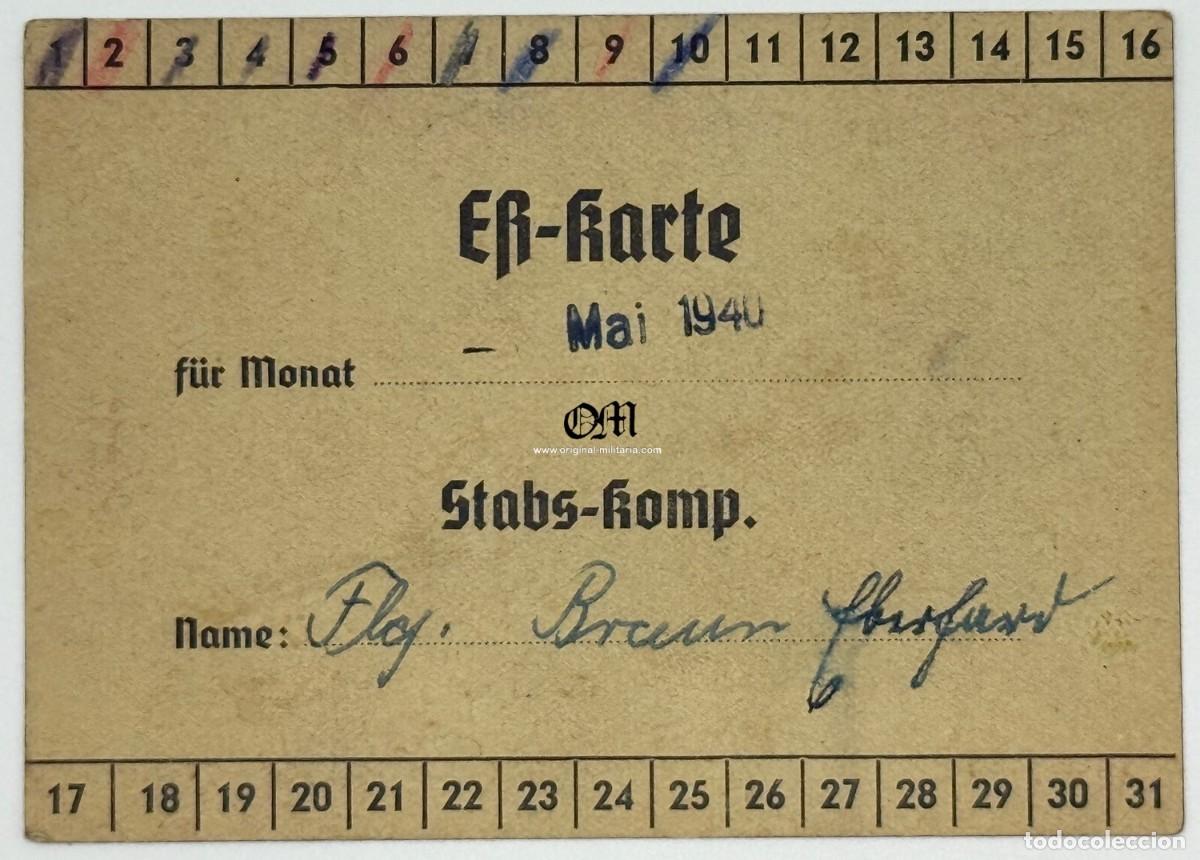 1 2 3 4 5 6 7 8 9 10 11 12 13 14 15 16
Eß-Karte
Mai 1940
für Monat
OM
www.original-militaria.com
Stabs-Komp.
Name: Flg. Braun Eberhard
17 18 19 20 21 22 23 24 25 26 27 28 29 30 31
todocoleccion